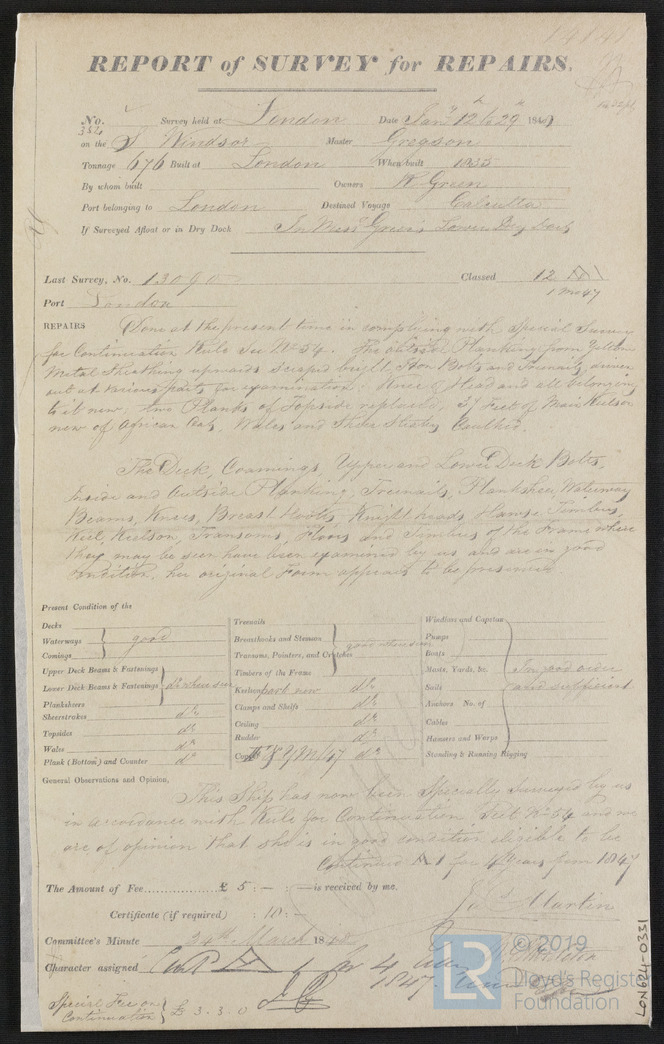 REPORT of SURVEY for REPAIRS.
No. 382 Survey held at London Date Jany 12th to 29th 184
on the S. Windsor Master Gregson
Tonnage 676 Built at London When built 1835
By whom built Owners R Green
Port belonging to London Destined Voyage Calcutta
If Surveyed Afloat or in Dry Dock In Messrs Green's Lower Dry Dock
Last Survey, No. 13090 Classed 12 A1
1 mo 47
Port London
REPAIRS Done at the present time in complying with Special Survey
for Continuation Rule Sec No 54. The outside Planking from Yellow
Metal Sheathing upwards scraped bright, Iron Bolts and Treenails driven
out at various parts for examination. Knee of Head and all belonging
to it new, two Planks of Topside replaced, 37 Feet of Main Keelson
new of African Oak, Wales and Sheer Strakes Caulked.
The Deck, Coamings, Upper and Lower Deck Bolts,
Inside and Outside Planking, Treenails, Planksheer, Waterway
Beams, Knees, Breast Hooks, Knightheads, Hawse Timbers,
Keel, Keelson, Transoms, Floors and Timbers of the Frame where
they may be seen have been examined by us and are in good
Condition, her original Form appears to be preserved
Present Condition of the
Decks
Waterways } good
Comings
Upper Deck Beams & Fastenings
Lower Deck Beams & Fastenings } do where seen
Plansheers
Sheerstrakes do
Topsides do
Wales do
Plank (Bottom) and Counter do
Treenails
Breasthooks and Stemson
Transoms, Pointers, and Crutches } good where seen
Timbers of the Frame
Keelson part new do
Clamps and Shelfs do
Ceiling do
Rudder do
Y M/47 do
Windlass and Capstan
Pumps
Boats
Masts, Yards, &c. In good order
Sails and sufficient
Anchors No. of
Cables
Hawsers and Warps
Standing & Running Rigging
General Observations and Opinion,
This Ship has now been Specially Surveyed by us
in accordance with Rule for Continuation Sect No 54 and we
are of opinion that she is in good condition eligible to be
Continued A1 for 4 Years from 1847
The Amount of Fee............ £ 5 : — : — is received by me.
Jas Martin
Certificate (if required) : 10 : —
Committee's Minute 24th March 184
Character assigned Cont A 1 for 4 years
1847
Special Fee on
Continuation } £ 3.3.0
LR © 2019
Lloyd's Register
Foundation
LON624-0331